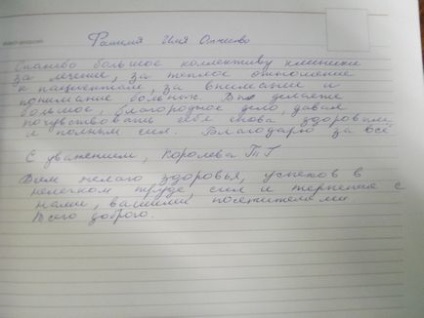 Фамилия Имя Отчество
Спасибо большое коллективу клиники
за лечение, за теплое отношение
к пациентам, за внимание и
понимание больных. Вы делаете
большое, благородное дело, давая
почувствовать себя снова здоровым
и полным сил. Благодарю за всё
С уважением, Королева Т Г
Всем желаю здоровья, успехов в
нелегком труде, сил и терпения с
нами, вашими посетителями
Всего доброго